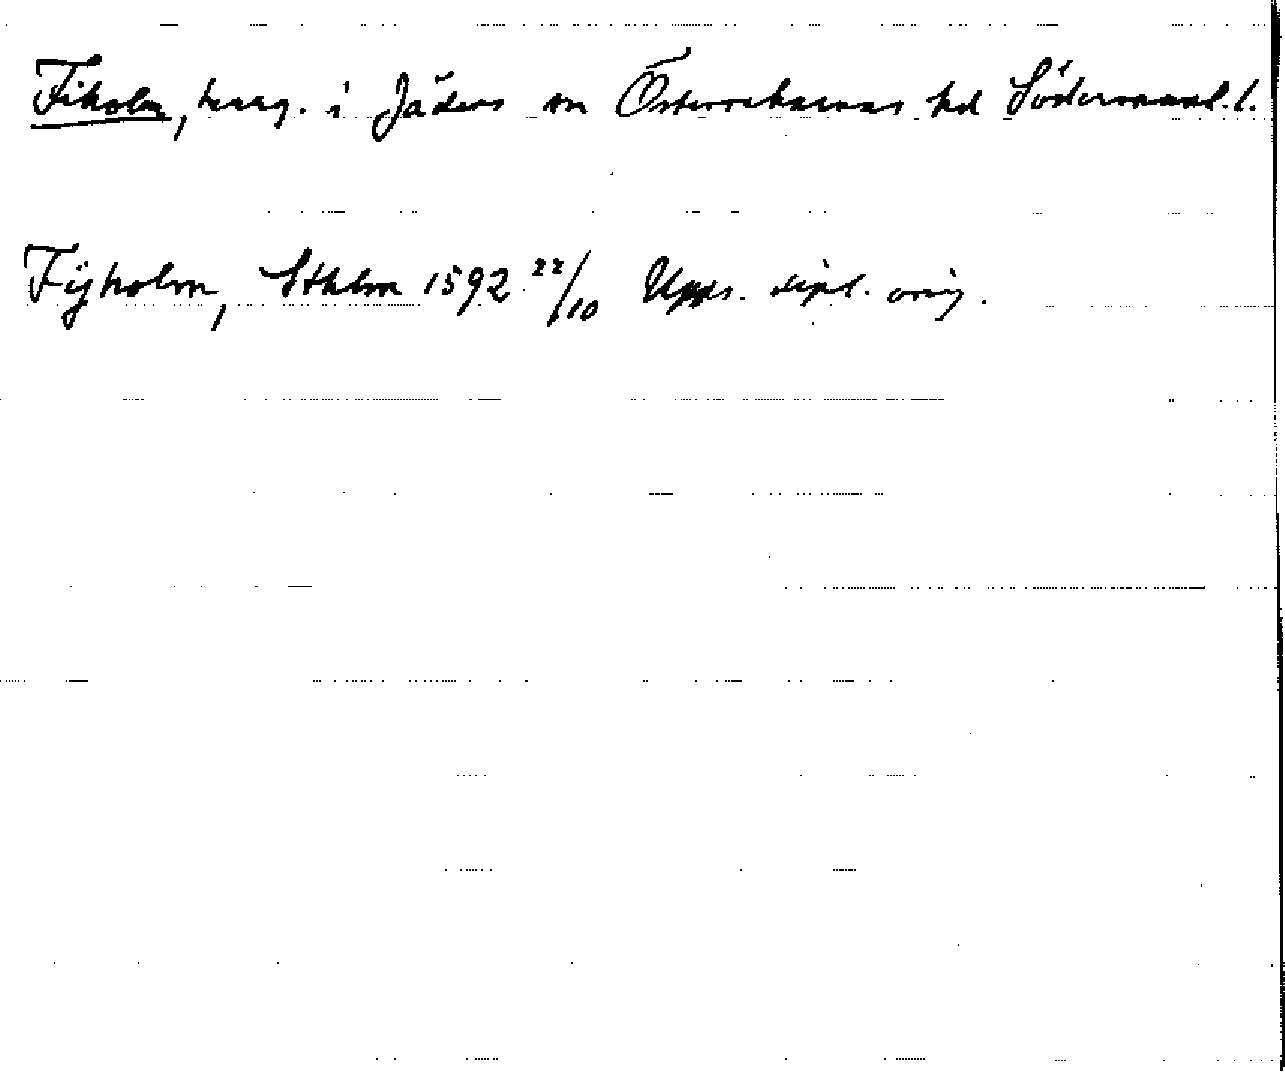 Fiholm, herrg. i Jäders sn Österrekarnes hd Södermanl. l.
Fijholm, Sthlm 1592 22/10 Upps. dipl. orig.